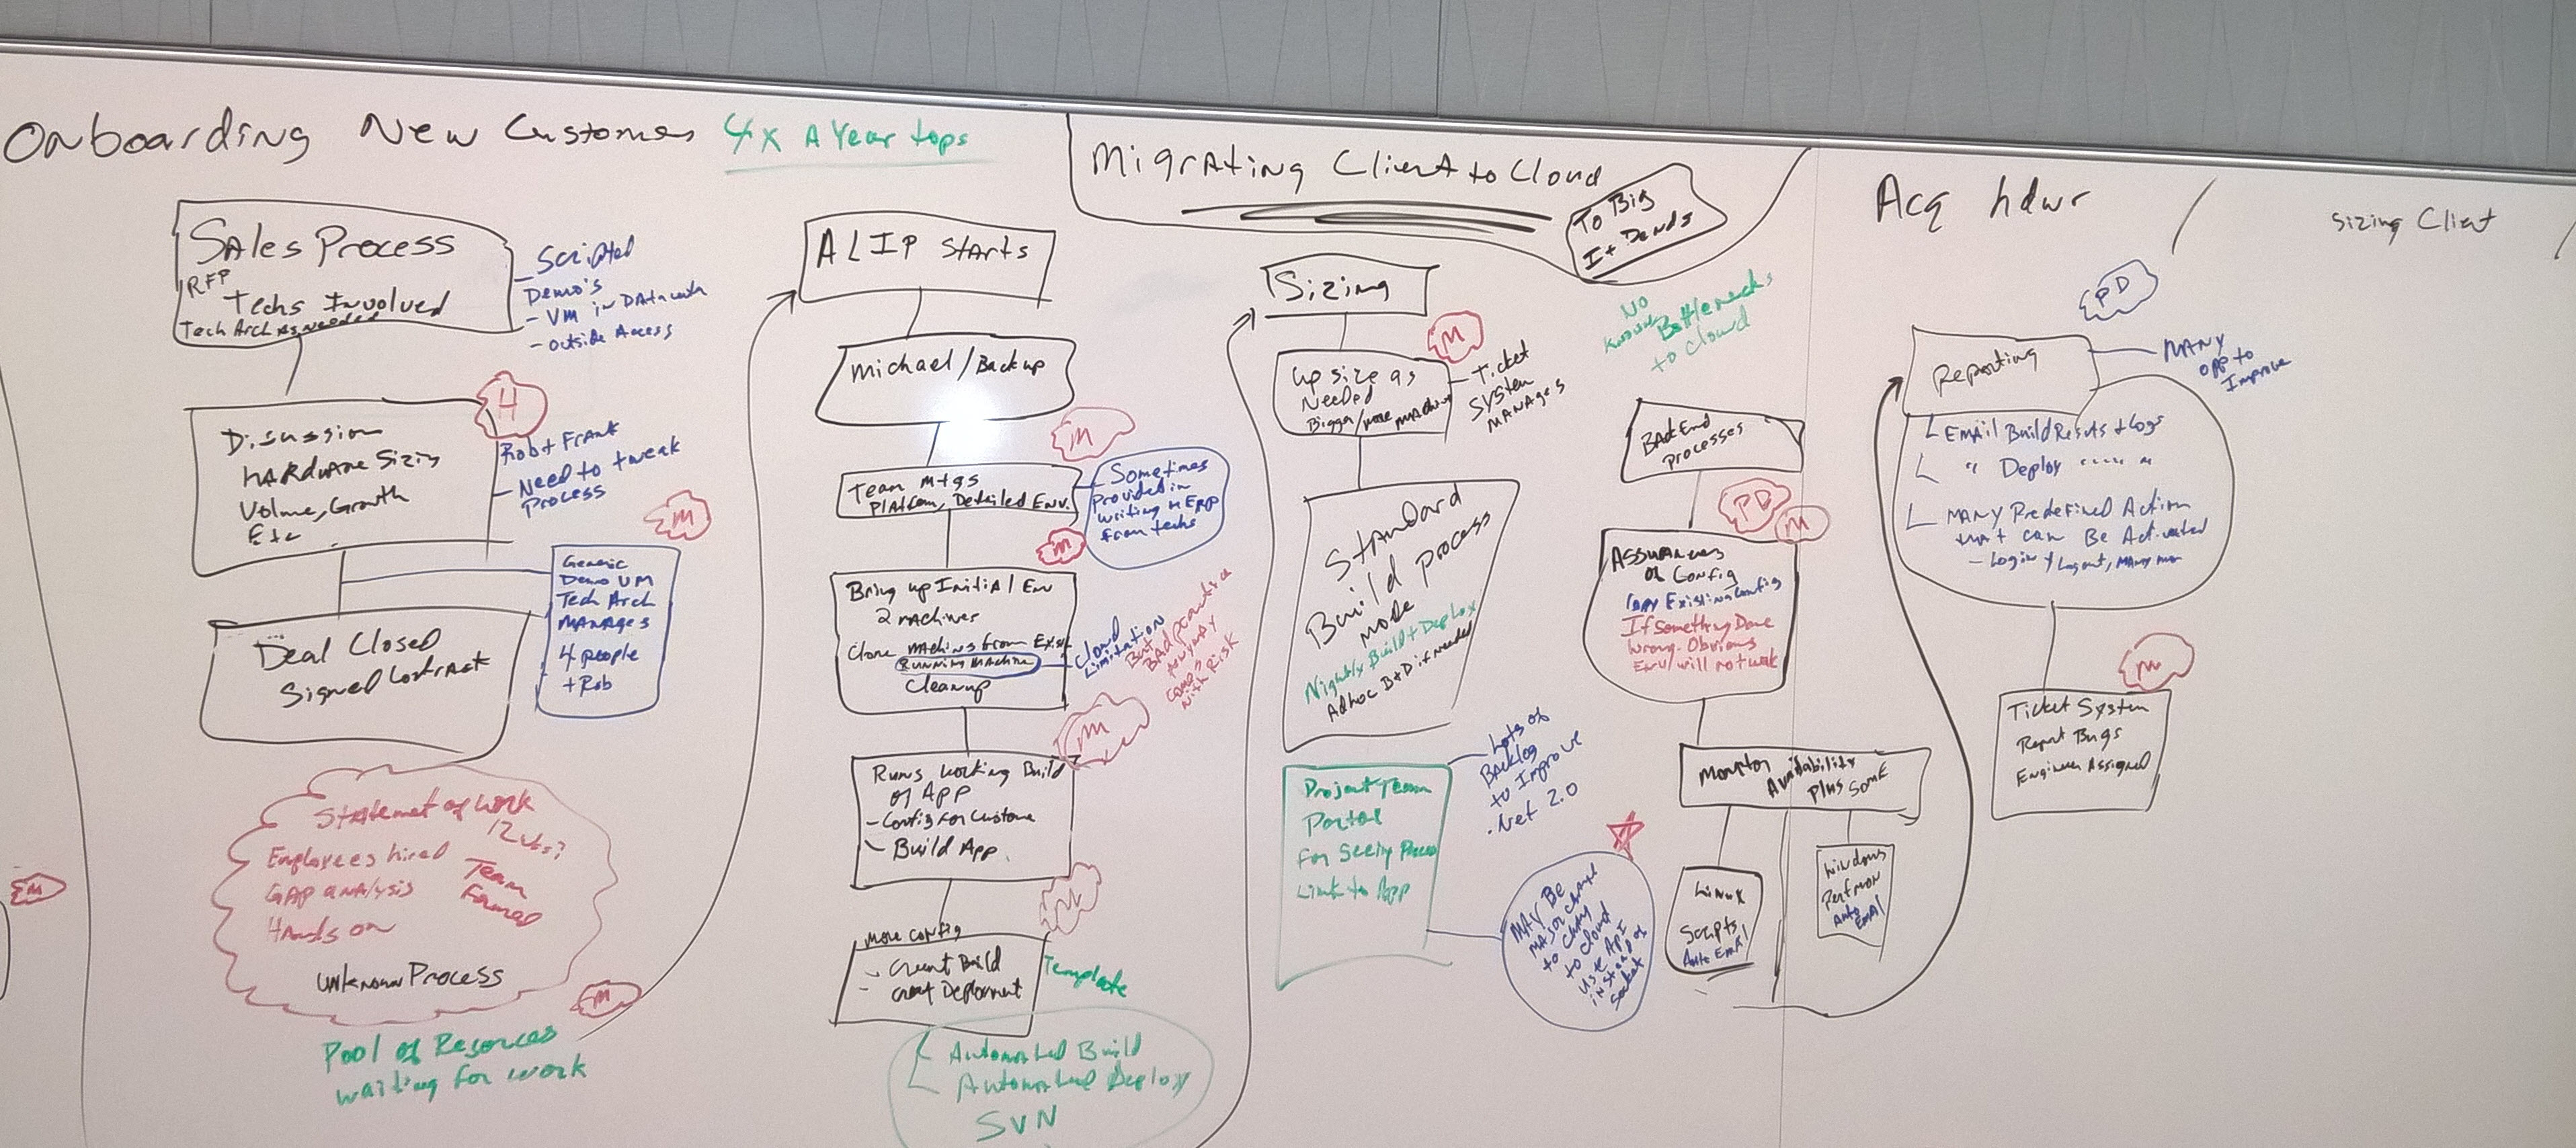 Onboarding New Customers 4x A Year tops
Sales Process
RFP
Techs Involved
Tech Arch As needed
Scripted
Demo's
- VM in Data
- outside Access
Discussion
Hardware Sizing
Volume, Growth
Etc
4
Rob + Frank
- Need to tweak
Process
M
Generic
Demo VM
Tech Arch
Manages
4 people
+ Rob
Deal Closed
Signed Contract
Statemet of work
Employees hired
GAP analysis
Hands on
Team
Formed
Unknown Process
M
Pool of Resorces
waiting for work
M
ALIP Starts
Michael/Backup
M
Team mtgs
Platform, Detailed Env.
Sometimes
provided in
writing
from techs
M
Bring up Initial Env
2 machines
Clone machines from Exist
Running Machine
Cleanup
Cloud
Limitation
But
Bad practice
anyway
comes
with Risk
M
Runs working Build
of App
- Config for Custome
- Build App.
M
More config
- Creat Build
- Creat Deployment
Template
Automated Build
Automated Deploy
SVN
Migrating Client to Cloud
To Big
It Dends
Sizing
M
Up size as
Needed
Bigger/more machine
- Ticket
System
Manages
Standard
Build process
mode
Nightly Build + Deploy
Adhoc B+D if needed
Project Team
Portal
For Seeing Process
Link to App
- Lots of
Backlog
to Improve
.Net 2.0
May Be
major change
to
to cloud
Use Api
instead of
Socket
No
Known Bottlenecks
to cloud
BackEnd
processes
PD
M
Assurances
of Config
Copy Existing Config
If something Done
wrong. Obvious
Env will not work
Monitor Availability
Plus Some
Linux
Scripts
Auto Email
Windows
Perfmon
Auto
Email
Acq hdwr / Sizing Client /
PD
Reporting
Many
opp to
Improve
Email Build Results + Logs
" Deploy " "
Many Predefined Action
that can Be Activated
- Login + Logout, Many more
M
Ticket System
Report Bugs
Engineer Assigned